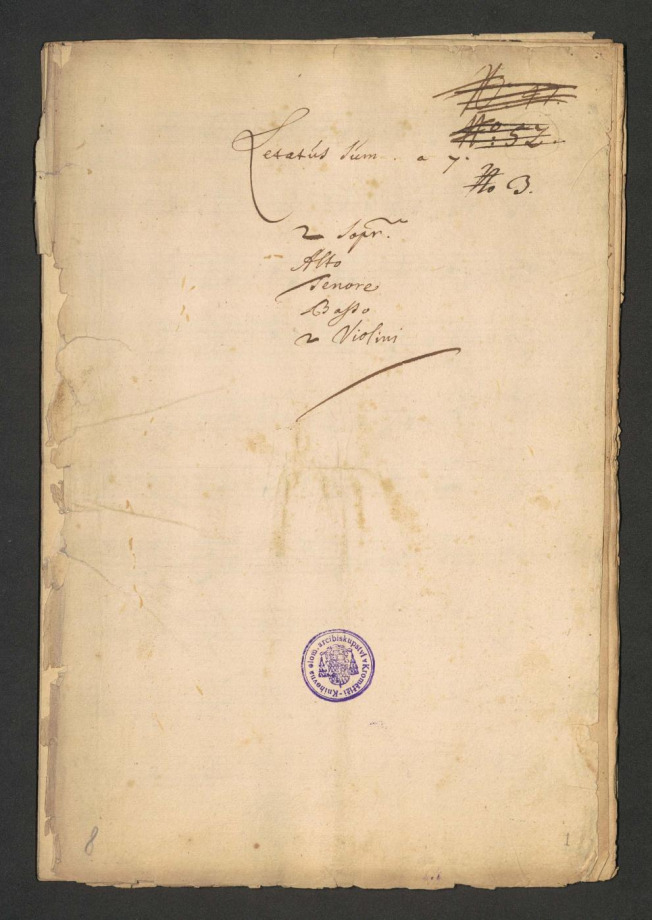 No 57.
No 3.
Letatus sum. a 7.
2 Sopr.
Alto
Tenore
Basso
2 Violini
Knihovna olom. arcibiskupství v Kroměříži
8
1